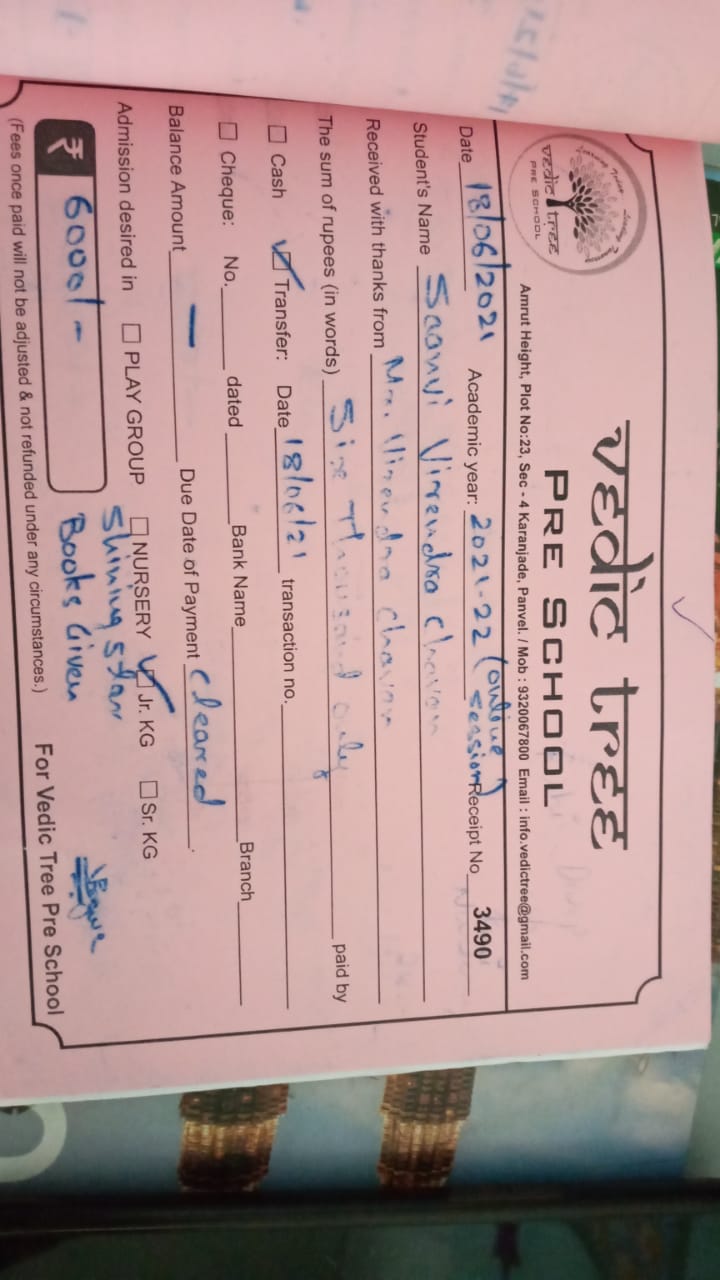 vedic tree
PRE SCHOOL
vedic tree
PRE SCHOOL
Amrut Height, Plot No:23, Sec - 4 Karanjade, Panvel. / Mob : 9320067800 Email : info.vedictree@gmail.com
Date 18/06/2021 Academic year: 2021-22 (online session) Receipt No. 3490
Student's Name Saanvi Virendra Chavan
Received with thanks from Mr. Virendra Chavan
The sum of rupees (in words) Six Thousand only paid by
☐ Cash ☑ Transfer: Date 18/06/21 transaction no.
☐ Cheque: No. dated Bank Name Branch
Balance Amount — Due Date of Payment Cleared
Admission desired in ☐ PLAY GROUP ☐ NURSERY ☑ Jr. KG ☐ Sr. KG
Shining star
₹ 6000/- Books Given
(Fees once paid will not be adjusted & not refunded under any circumstances.) For Vedic Tree Pre School